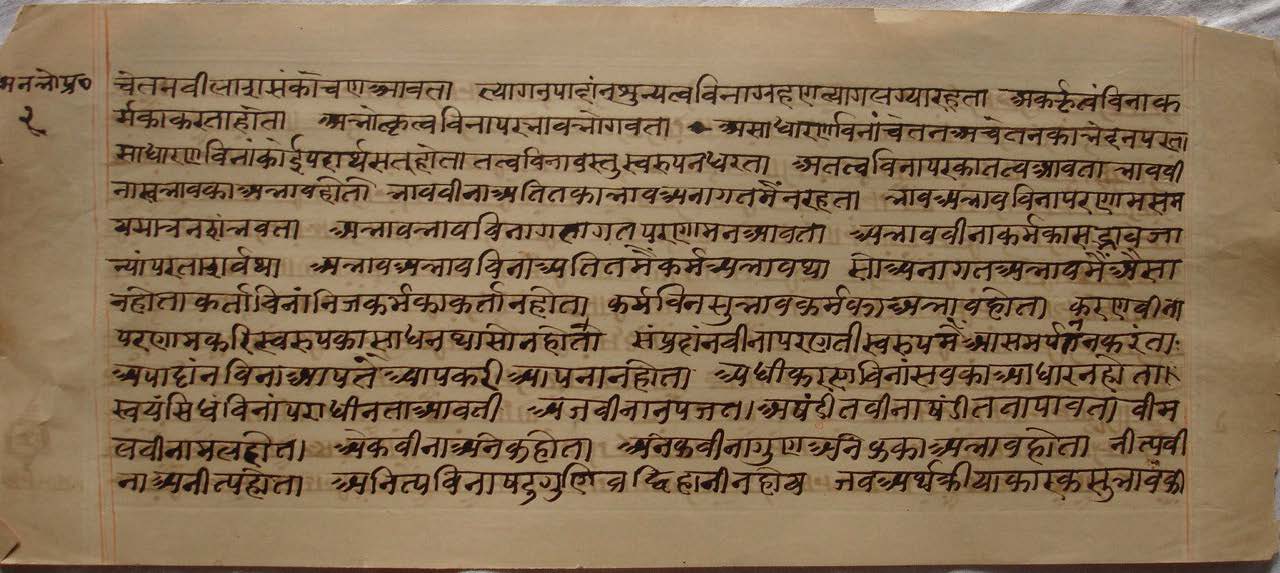 अनलोप्र०
२
चेतमवीलारासंकोचणआवता त्यागनुपादांनशुन्यत्वविनाग्रहाणत्यागलग्यारहता अकर्तृत्वंविनाक
र्मकाकरताहोता अभोत्कृत्वविनापरभावभोगवता असाधारणविनांचेतनअचेतनका
साधारणविनांकोईपदार्थसतहोता तत्वविनावस्तुस्वरुपनधरता अतत्वविनापरकातत्वआवता भाववी
नास्वभावकाअभावहोता भाववीनाअतितकाभावअनागतमैंनरहता भावअभावविनापरणामसम
यमात्रन अभावभावविनागतागतपरणामनआवता अभाववीनाकर्मकासद्भावजा
न्यांपरता अभावअभावविनाअतितमैकर्मअभावथा सोअनागतअभावमैंऔसा
नहोता कर्ताविनांनिजकर्मकाकर्तानहोता कर्मविनसुभावकर्मकाअभावहोता करणवीना
परणामकरिस्वरुपकासाधनथासोनहोता संप्रदांनवीनापरणतीस्वरुपमैआसमर्पननकरंता
अपादांनविनाआपतेंआपकरीआपनानहोता अधीकरणविनांसवकाआधारनहोता।
स्वयंसिधंविनांपराधीनताआवती अजवीनानुपजत। अषंडीतवीनाषंडीततापावता वीम
लवीनामलहोत। अेकवीनाअनेकहोता अनेकवीनागुणअनेककाअभावहोता नीत्यवी
नाअनीत्यहोता अनित्यविनाषटुगुणिव्रद्धिहानीनहोय जवअर्थकीयाकारकसुभावकी